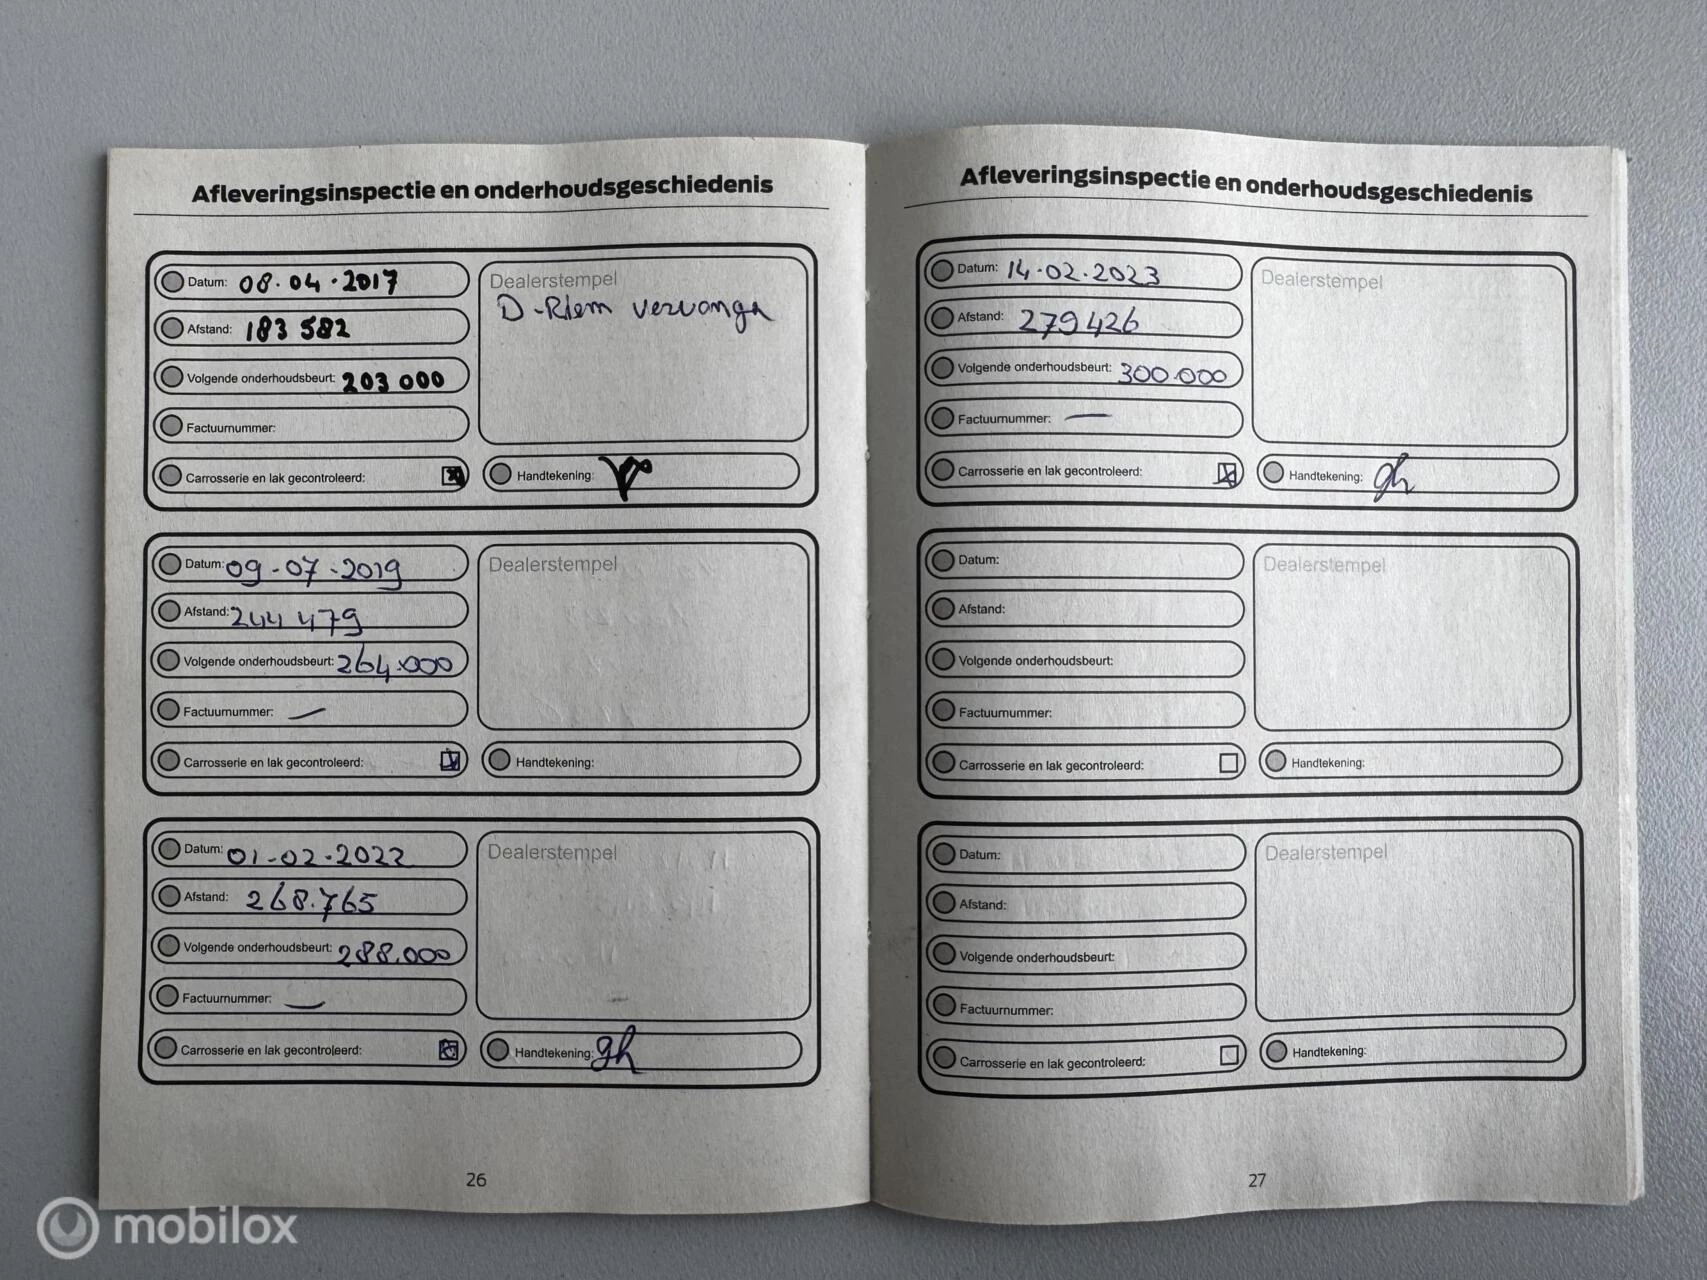 Afleveringsinspectie en onderhoudsgeschiedenis
Datum: 08.04.2017
Afstand: 183 582
Volgende onderhoudsbeurt: 203 000
Factuurnummer:
Carrosserie en lak gecontroleerd:
Dealerstempel
D-Riem vervangn
Handtekening:
Datum: 09-07-2019
Afstand: 244 479
Volgende onderhoudsbeurt: 264.000
Factuurnummer: —
Carrosserie en lak gecontroleerd:
Dealerstempel
Handtekening:
Datum: 01-02-2022
Afstand: 268.765
Volgende onderhoudsbeurt: 288.000
Factuurnummer: —
Carrosserie en lak gecontroleerd:
Dealerstempel
Handtekening: gh
26
Afleveringsinspectie en onderhoudsgeschiedenis
Datum: 14.02.2023
Afstand: 279426
Volgende onderhoudsbeurt: 300.000
Factuurnummer: —
Carrosserie en lak gecontroleerd:
Dealerstempel
Handtekening: gh
Datum:
Afstand:
Volgende onderhoudsbeurt:
Factuurnummer:
Carrosserie en lak gecontroleerd:
Dealerstempel
Handtekening:
Datum:
Afstand:
Volgende onderhoudsbeurt:
Factuurnummer:
Carrosserie en lak gecontroleerd:
Dealerstempel
Handtekening:
27
mobilox